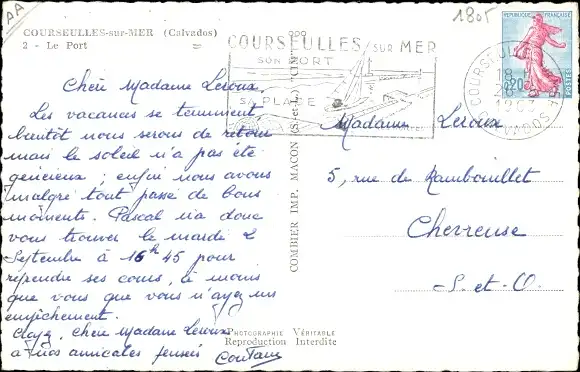 AA
COURSEULLES-sur-MER (Calvados)
2 - Le Port
1805
COURSEULLES SUR MER
SON PORT
SA PLAGE
REPUBLIQUE FRANÇAISE
0,20
POSTES
18 H
1963
CALVADOS
Chère Madame Leroux,
Les vacances se terminent
bientôt nous serons de retour
mais le soleil n'a pas été
généreux ; enfin nous avons
malgré tout passé de bons
moments. Pascal ira donc
vous trouver le mardi 2
Septembre à 16h 45 pour
reprendre ses cours, à moins
que vous que vous n'ayez un
empêchement.
Croyez, chère Madame Leroux
à nos amicales pensées
COMBIER IMP. MACON (S.-et-L.)
Madame Leroux
5, rue de Rambouillet
Chevreuse
S. et O.
PHOTOGRAPHIE VÉRITABLE
Reproduction Interdite